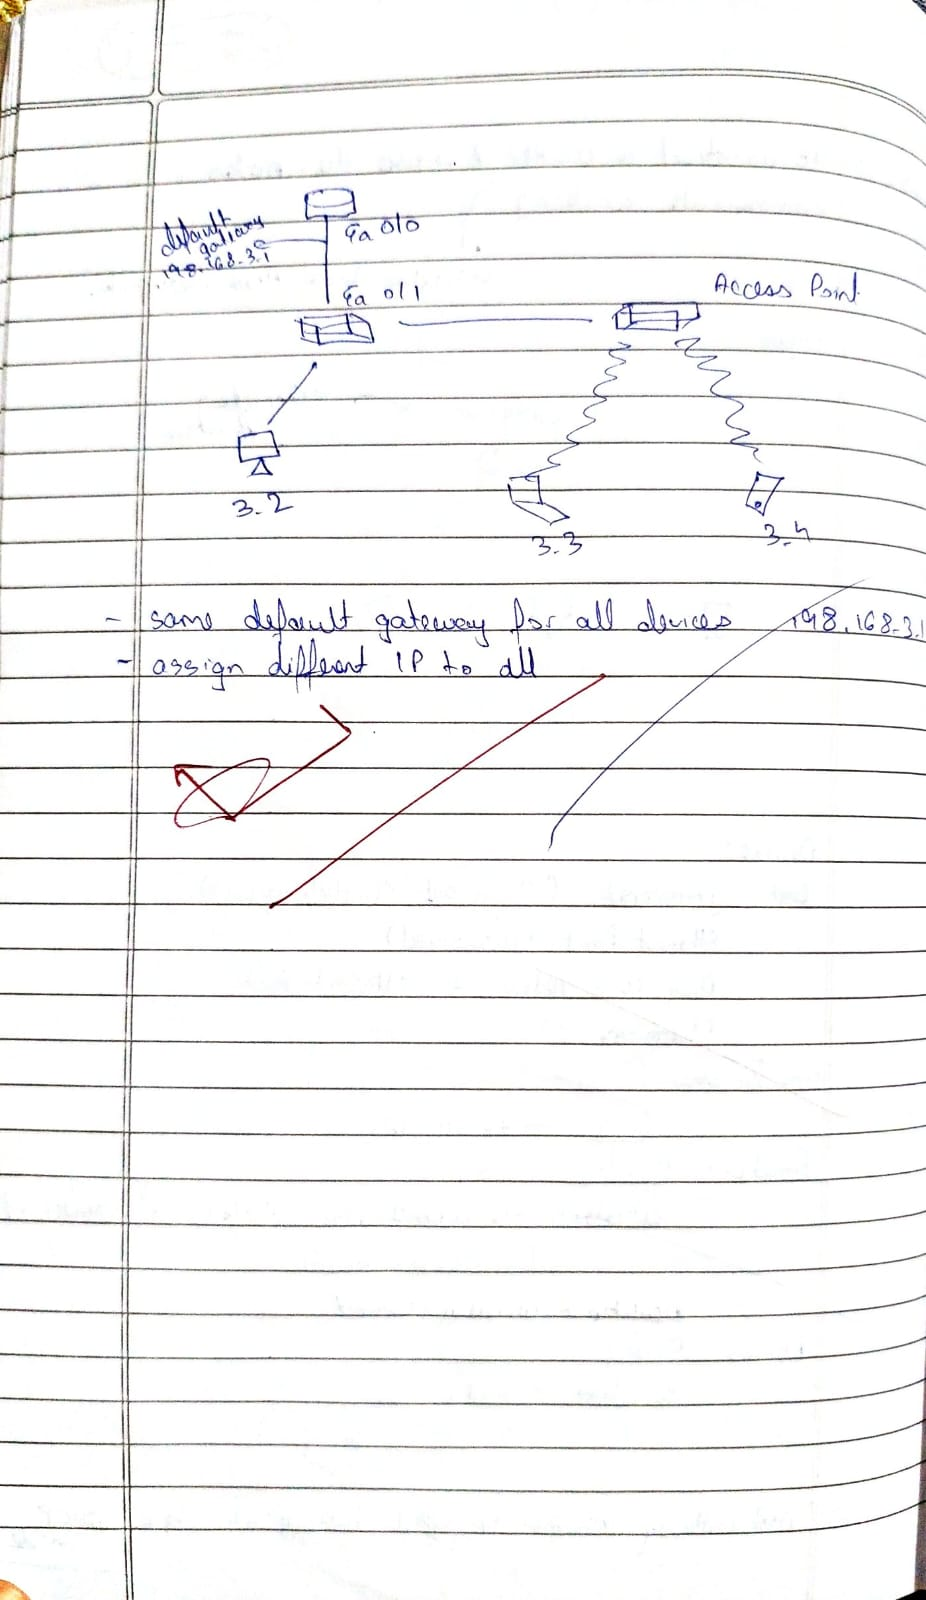 default
gateway
198.168.3.1
Fa 0/0
Fa 0/1
Access Point
3.2
3.3
3.4
- same default gateway for all devices 198.168.3.1
- assign different IP to all